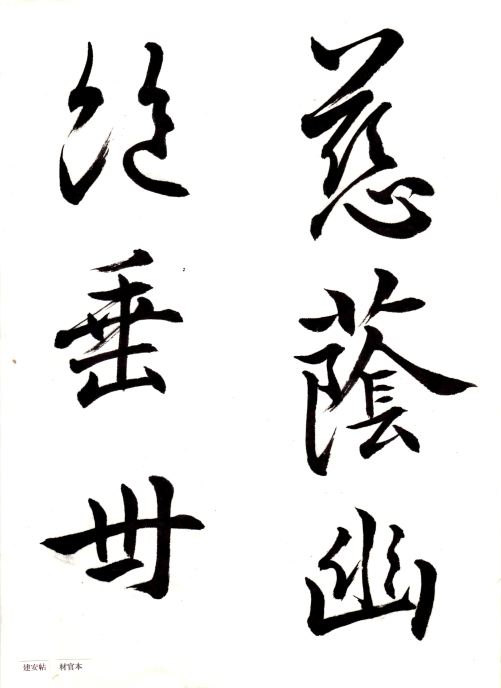 慈蔭幽
絶垂卅
建安帖 材官本